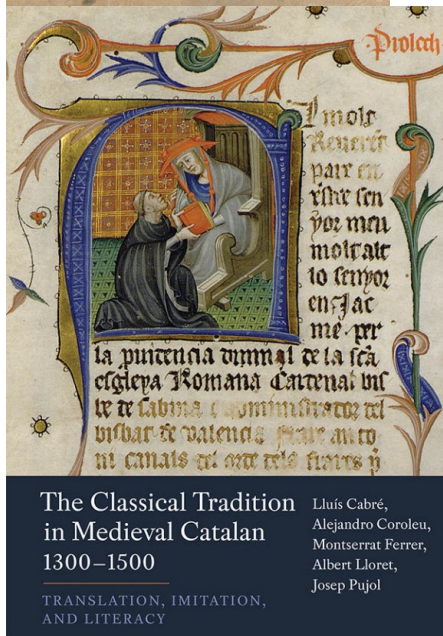 Prolech
molt
Reverēt
pare en
sen
yor meu
molt alt
lo senyor
en Jac
me per
la divinal de la scā
esgleya Romana Cardenal bis
be de sabina e aministrador del
bisbat de valencia frare anto
ni canals del orde dels frares p
The Classical Tradition
in Medieval Catalan
1300–1500
TRANSLATION, IMITATION,
AND LITERACY
Lluís Cabré,
Alejandro Coroleu,
Montserrat Ferrer,
Albert Lloret,
Josep Pujol